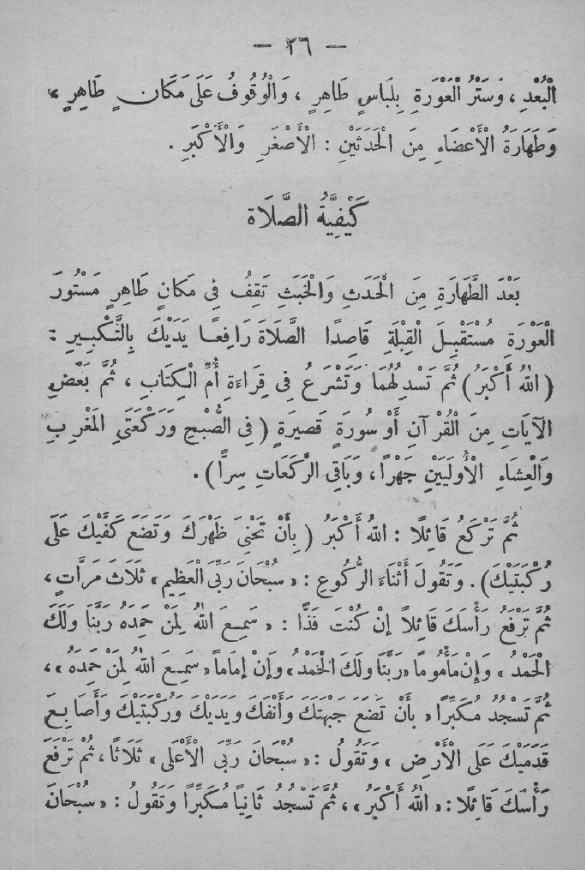 — ٣٦ —
الْبُعْدِ ، وَسَتْرُ الْعَوْرَةِ بِلِبَاسٍ طَاهِرٍ ، وَالْوُقُوفُ عَلَى مَكَانٍ طَاهِرٍ ،
وَطَهَارَةُ الْأَعْضَاءِ مِنَ الْحَدَثَيْنِ : الْأَصْغَرِ وَالْأَكْبَرِ .
كَيْفِيَّةُ الصَّلَاة
بَعْدَ الطَّهَارَةِ مِنَ الْحَدَثِ وَالْخَبَثِ تَقِفُ فِي مَكَانٍ طَاهِرٍ مَسْتُورَ
الْعَوْرَةِ مُسْتَقْبِلَ القِبْلَةِ قَاصِدًا الصَّلَاةَ رَافِعًا يَدَيْكَ بِالتَّكْبِيرِ :
( اللهُ أَكْبَرُ ) ثُمَّ تَسْدِلُهُمَا وَتَشْرَعُ فِي قِرَاءَةِ أُمِّ الْكِتَابِ ، ثُمَّ بَعْضِ
الآيَاتِ مِنَ الْقُرْآنِ أَوْ سُورَةٍ قَصِيرَةٍ ( فِي الصُّبْحِ وَرَكْعَتَيِ المَغْرِبِ
وَالْعِشَاءِ الْأُولَيَيْنِ جَهْرًا ، وَبَاقِي الرَّكَعَاتِ سِرًّا ) .
ثُمَّ تَرْكَعُ قَائِلًا : اللهُ أَكْبَرُ ( بِأَنْ تَحْنِيَ ظَهْرَكَ وَتَضَعَ كَفَّيْكَ عَلَى
رُكْبَتَيْكَ ) . وَتَقُولَ أَثْنَاءَ الرُّكُوعِ : « سُبْحَانَ رَبِّيَ الْعَظِيمِ » ثَلَاثَ مَرَّاتٍ ،
ثُمَّ تَرْفَعُ رَأْسَكَ قَائِلًا إِنْ كُنْتَ فَذًّا : « سَمِعَ اللهُ لِمَنْ حَمِدَهُ رَبَّنَا وَلَكَ
الْحَمْدُ » وَإِنْ مَأْمُومًا « رَبَّنَا وَلَكَ الْحَمْدُ » وَإِنْ إِمَامًا « سَمِعَ اللهُ لِمَنْ حَمِدَهُ » ،
ثُمَّ تَسْجُدُ مُكَبِّرًا « بِأَنْ تَضَعَ جَبْهَتَكَ وَأَنْفَكَ وَيَدَيْكَ وَرُكْبَتَيْكَ وَأَصَابِعَ
قَدَمَيْكَ عَلَى الْأَرْضِ » وَتَقُولُ : « سُبْحَانَ رَبِّيَ الْأَعْلَى » ثَلَاثًا ، ثُمَّ تَرْفَعَ
رَأْسَكَ قَائِلًا : « اللهُ أَكْبَرُ » ، ثُمَّ تَسْجُدُ ثَانِيًا مُكَبِّرًا وَتَقُولُ : « سُبْحَانَ